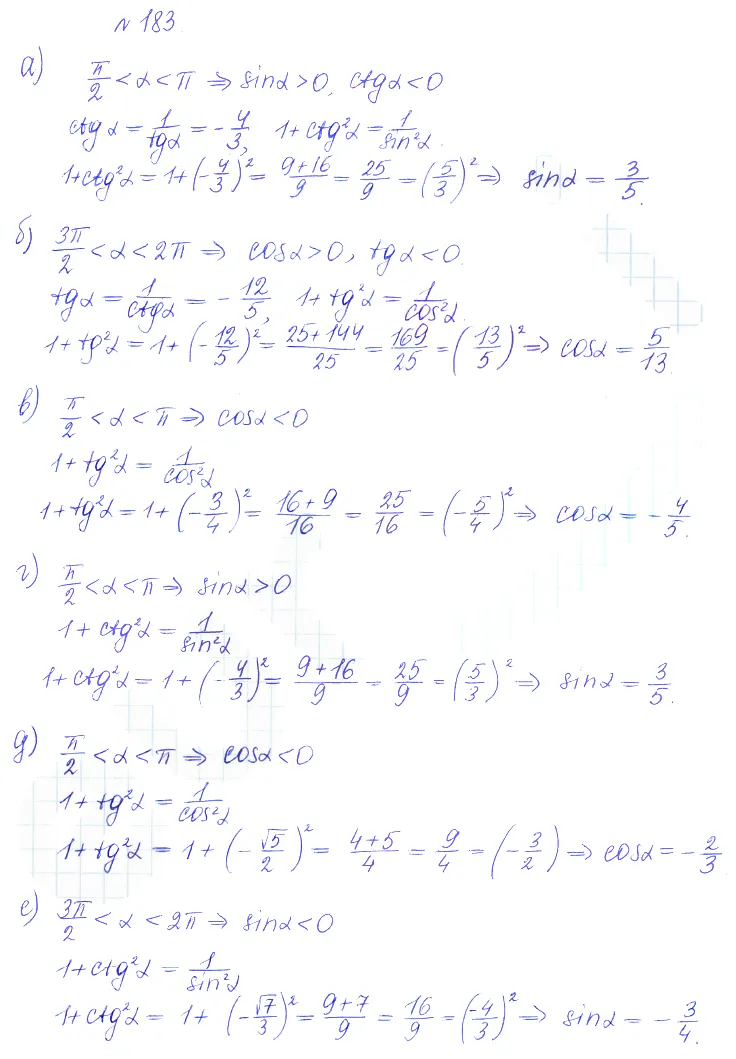 № 183
а) π/2 < α < π ⇒ sinα > 0, ctgα < 0
ctgα = 1/tgα = -4/3, 1+ctg²α = 1/sin²α.
1+ctg²α = 1+(-4/3)² = (9+16)/9 = 25/9 = (5/3)² ⇒ sinα = 3/5.
б) 3π/2 < α < 2π ⇒ cosα > 0, tgα < 0.
tgα = 1/ctgα = -12/5, 1+tg²α = 1/cos²α.
1+tg²α = 1+(-12/5)² = (25+144)/25 = 169/25 = (13/5)² ⇒ cosα = 5/13.
в) π/2 < α < π ⇒ cosα < 0
1+tg²α = 1/cos²α
1+tg²α = 1+(-3/4)² = (16+9)/16 = 25/16 = (-5/4)² ⇒ cosα = -4/5.
г) π/2 < α < π ⇒ sinα > 0
1+ctg²α = 1/sin²α
1+ctg²α = 1+(-4/3)² = (9+16)/9 = 25/9 = (5/3)² ⇒ sinα = 3/5.
д) π/2 < α < π ⇒ cosα < 0
1+tg²α = 1/cos²α
1+tg²α = 1+(-√5/2)² = (4+5)/4 = 9/4 = (-3/2) ⇒ cosα = -2/3
е) 3π/2 < α < 2π ⇒ sinα < 0
1+ctg²α = 1/sin²α
1+ctg²α = 1+(-√7/3)² = (9+7)/9 = 16/9 = (-4/3)² ⇒ sinα = -3/4.